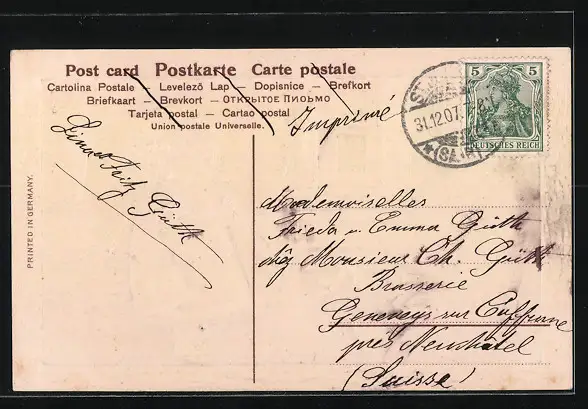 Post card Postkarte Carte postale
Cartolina Postale – Levelező Lap – Dopisnice – Brefkort
Briefkaart – Brevkort – ОТКРЫТОЕ ПИСЬМО
Tarjeta postal – Cartao postal
Union postale Universelle.
PRINTED IN GERMANY.
5 5
DEUTSCHES REICH
31.12.07.
Imprimé
Fritz Güth
Mademoiselles
Frieda u. Emma Güth
Monsieur Ch. Güth
Brasserie
Geneveys sur Coffrane
près Neuchâtel
(Suisse)